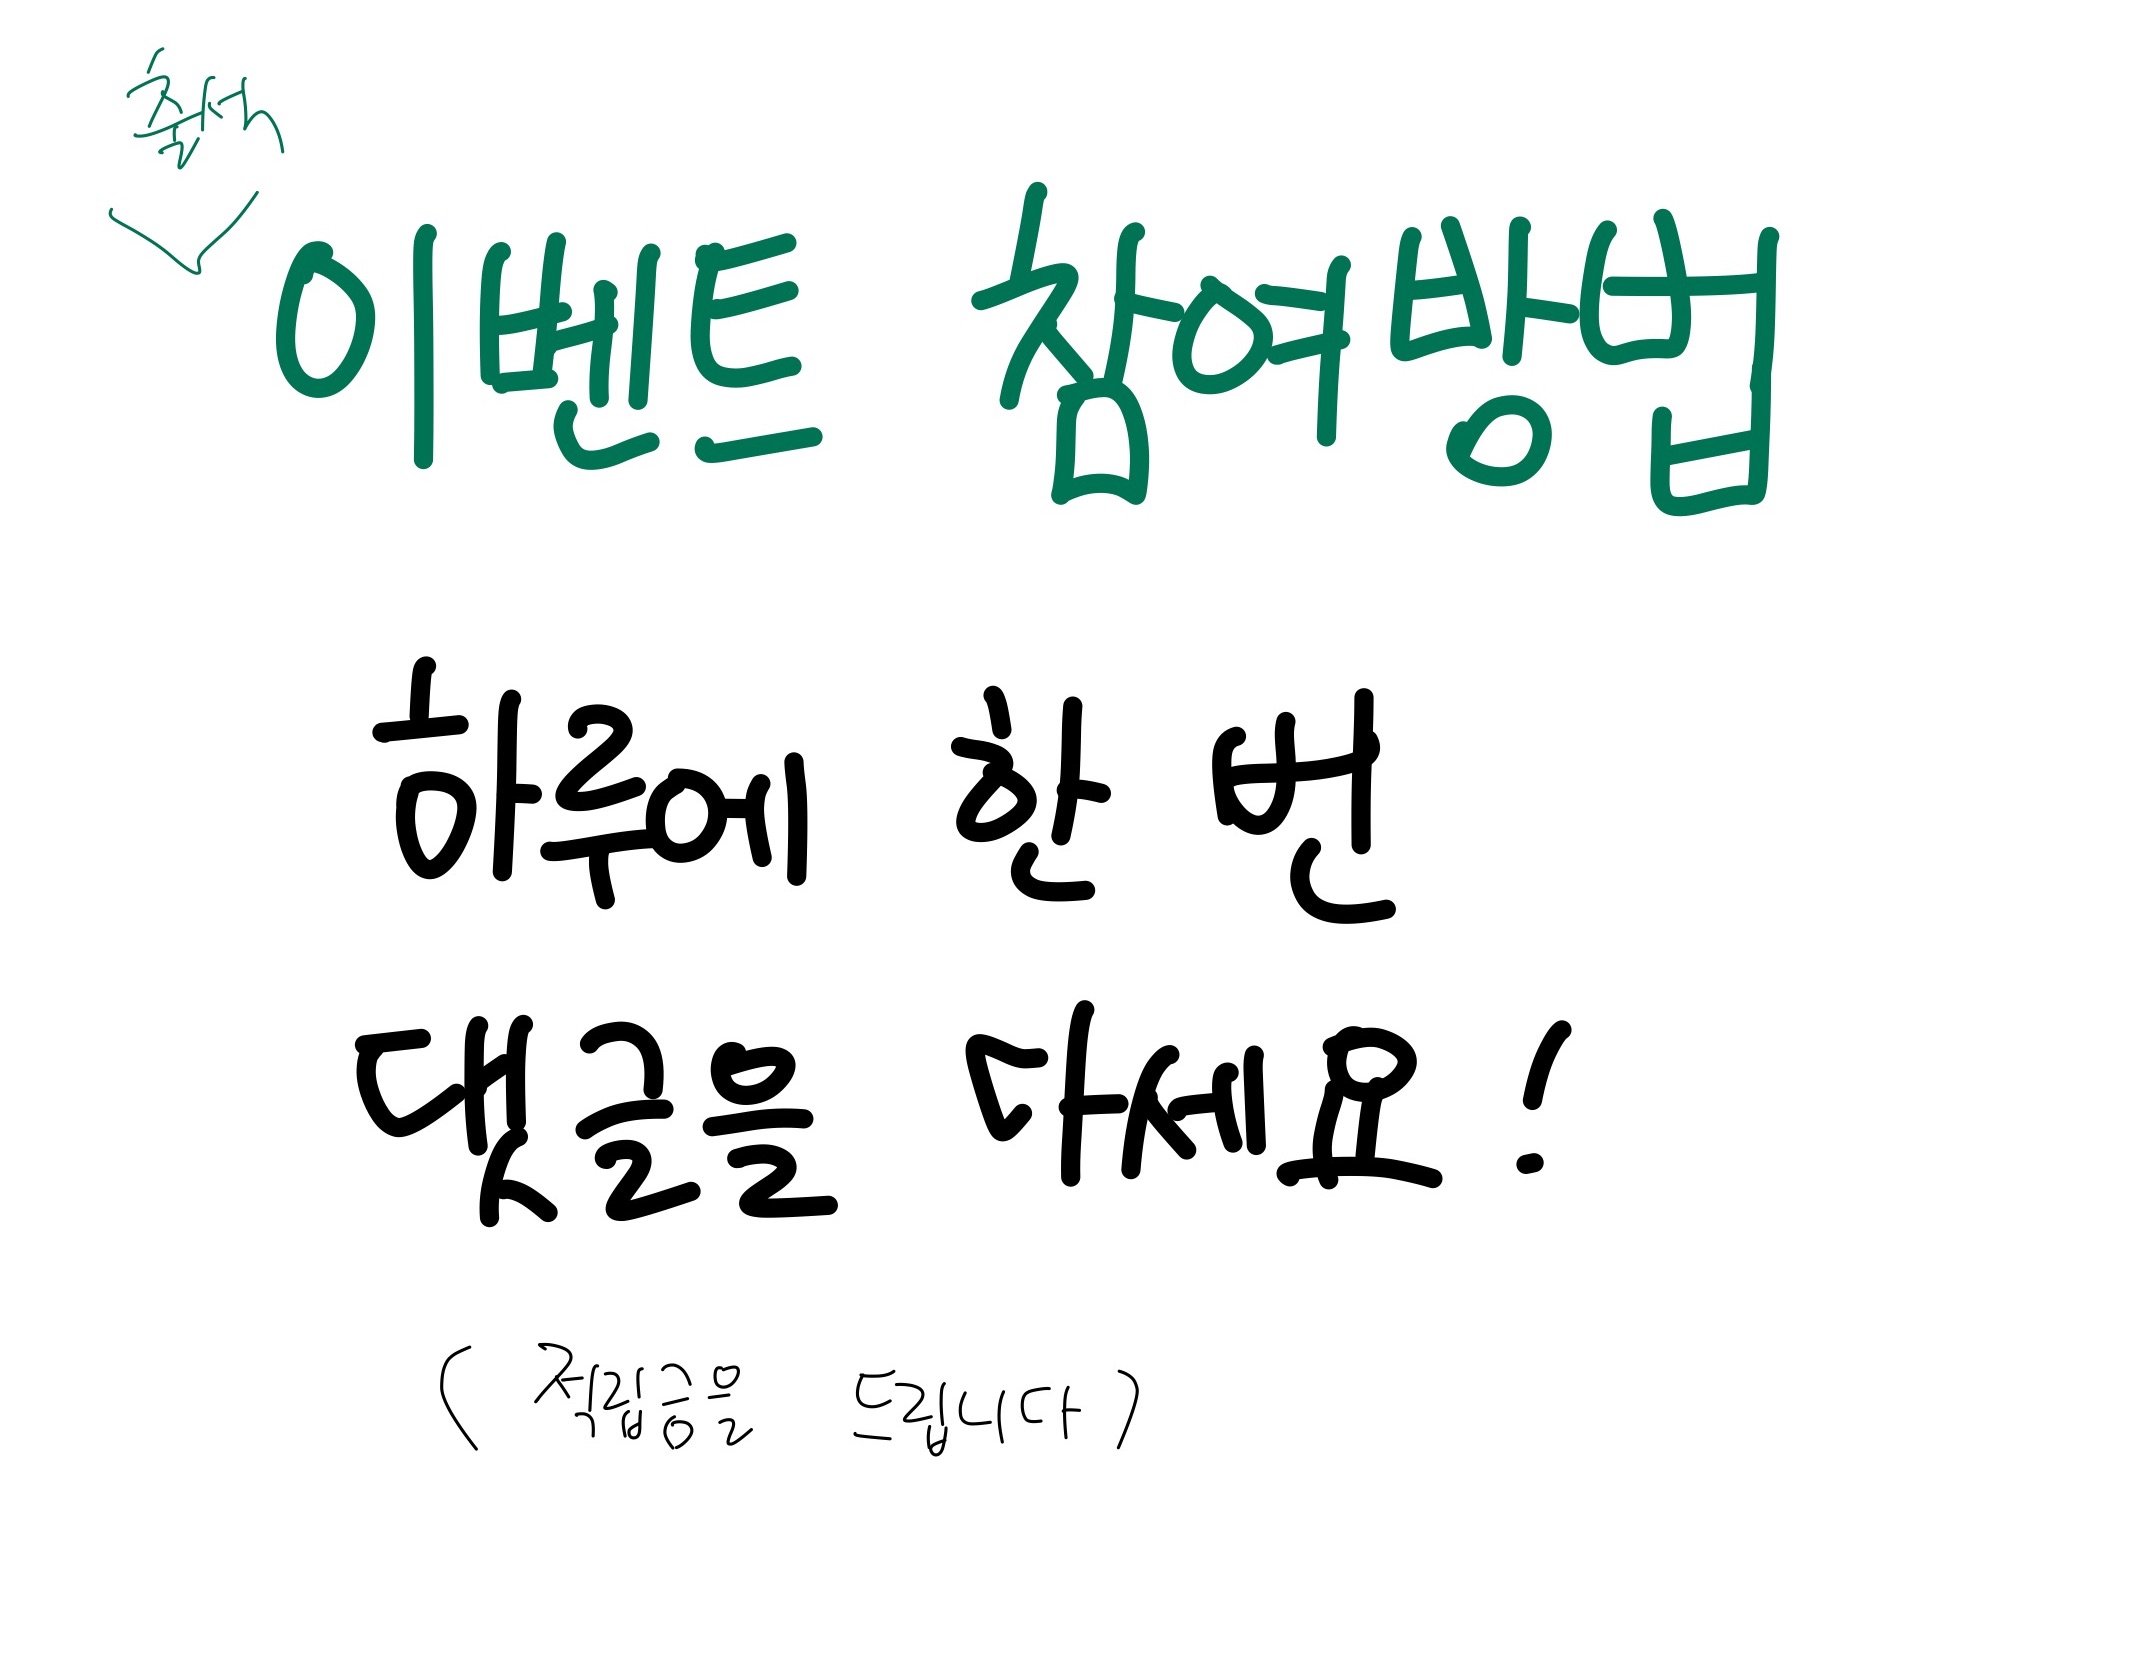 출석
이벤트 참여방법
하루에 한 번
댓글을 다세요!
(적립금을 드립니다)